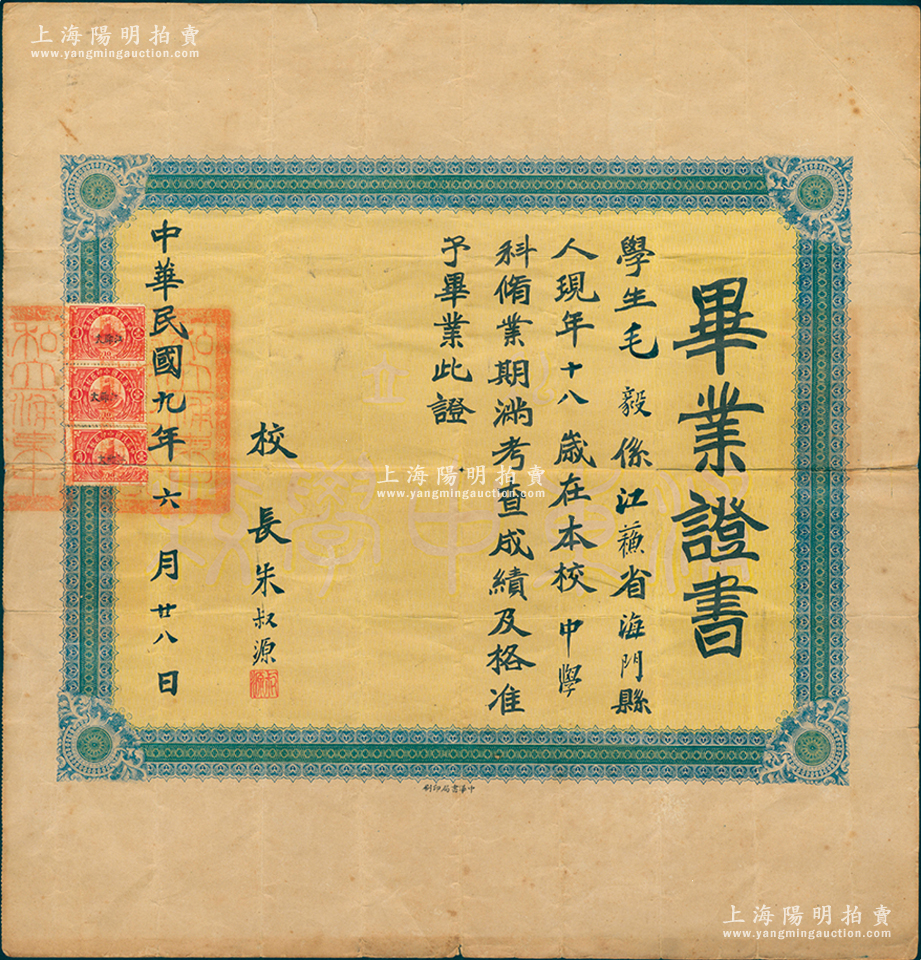 上海陽明拍賣
www.yangmingauction.com
上海陽明拍賣
www.yangmingauction.com
畢業證書
學生毛毅係江蘇省海門縣
人現年十八歲在本校中學
科脩業期滿考查成績及格准
予畢業此證
校長朱叔源
中華民國九年六月廿八日
上海陽明拍賣
www.yangmingauction.com
中華書局印刷
上海陽明拍賣
www.yangmingauction.com